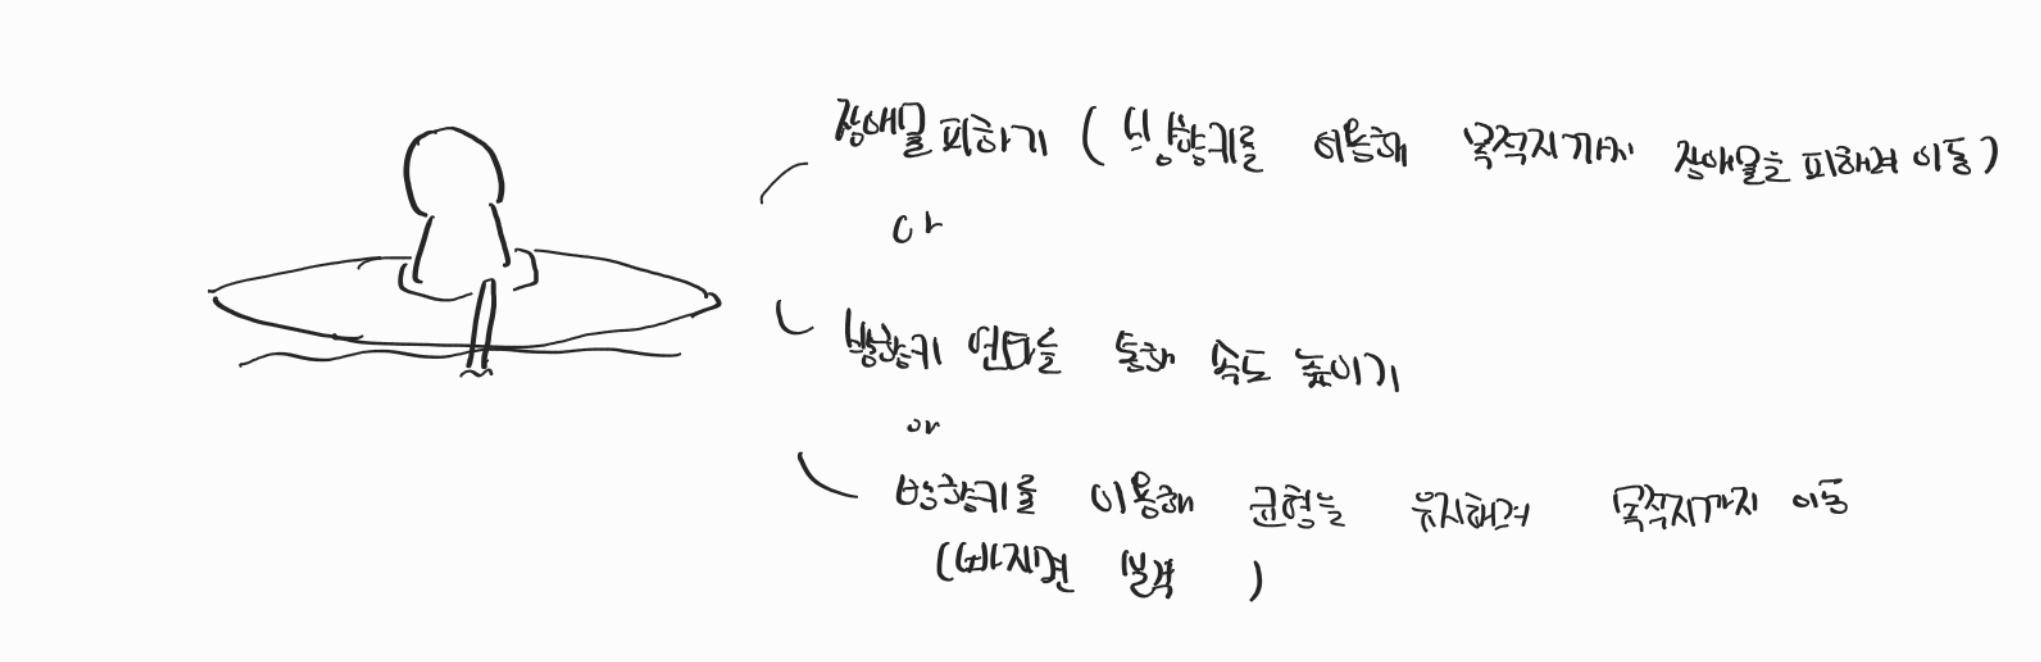 장애물 피하기 ( 방향키를 이용해 목적지까지 장애물을 피해려 이동 )
or
방향키 연타를 통해 속도 높이기
or
방향키를 이용해 균형을 유지해려 목적지까지 이동
(빠지면 실격 )